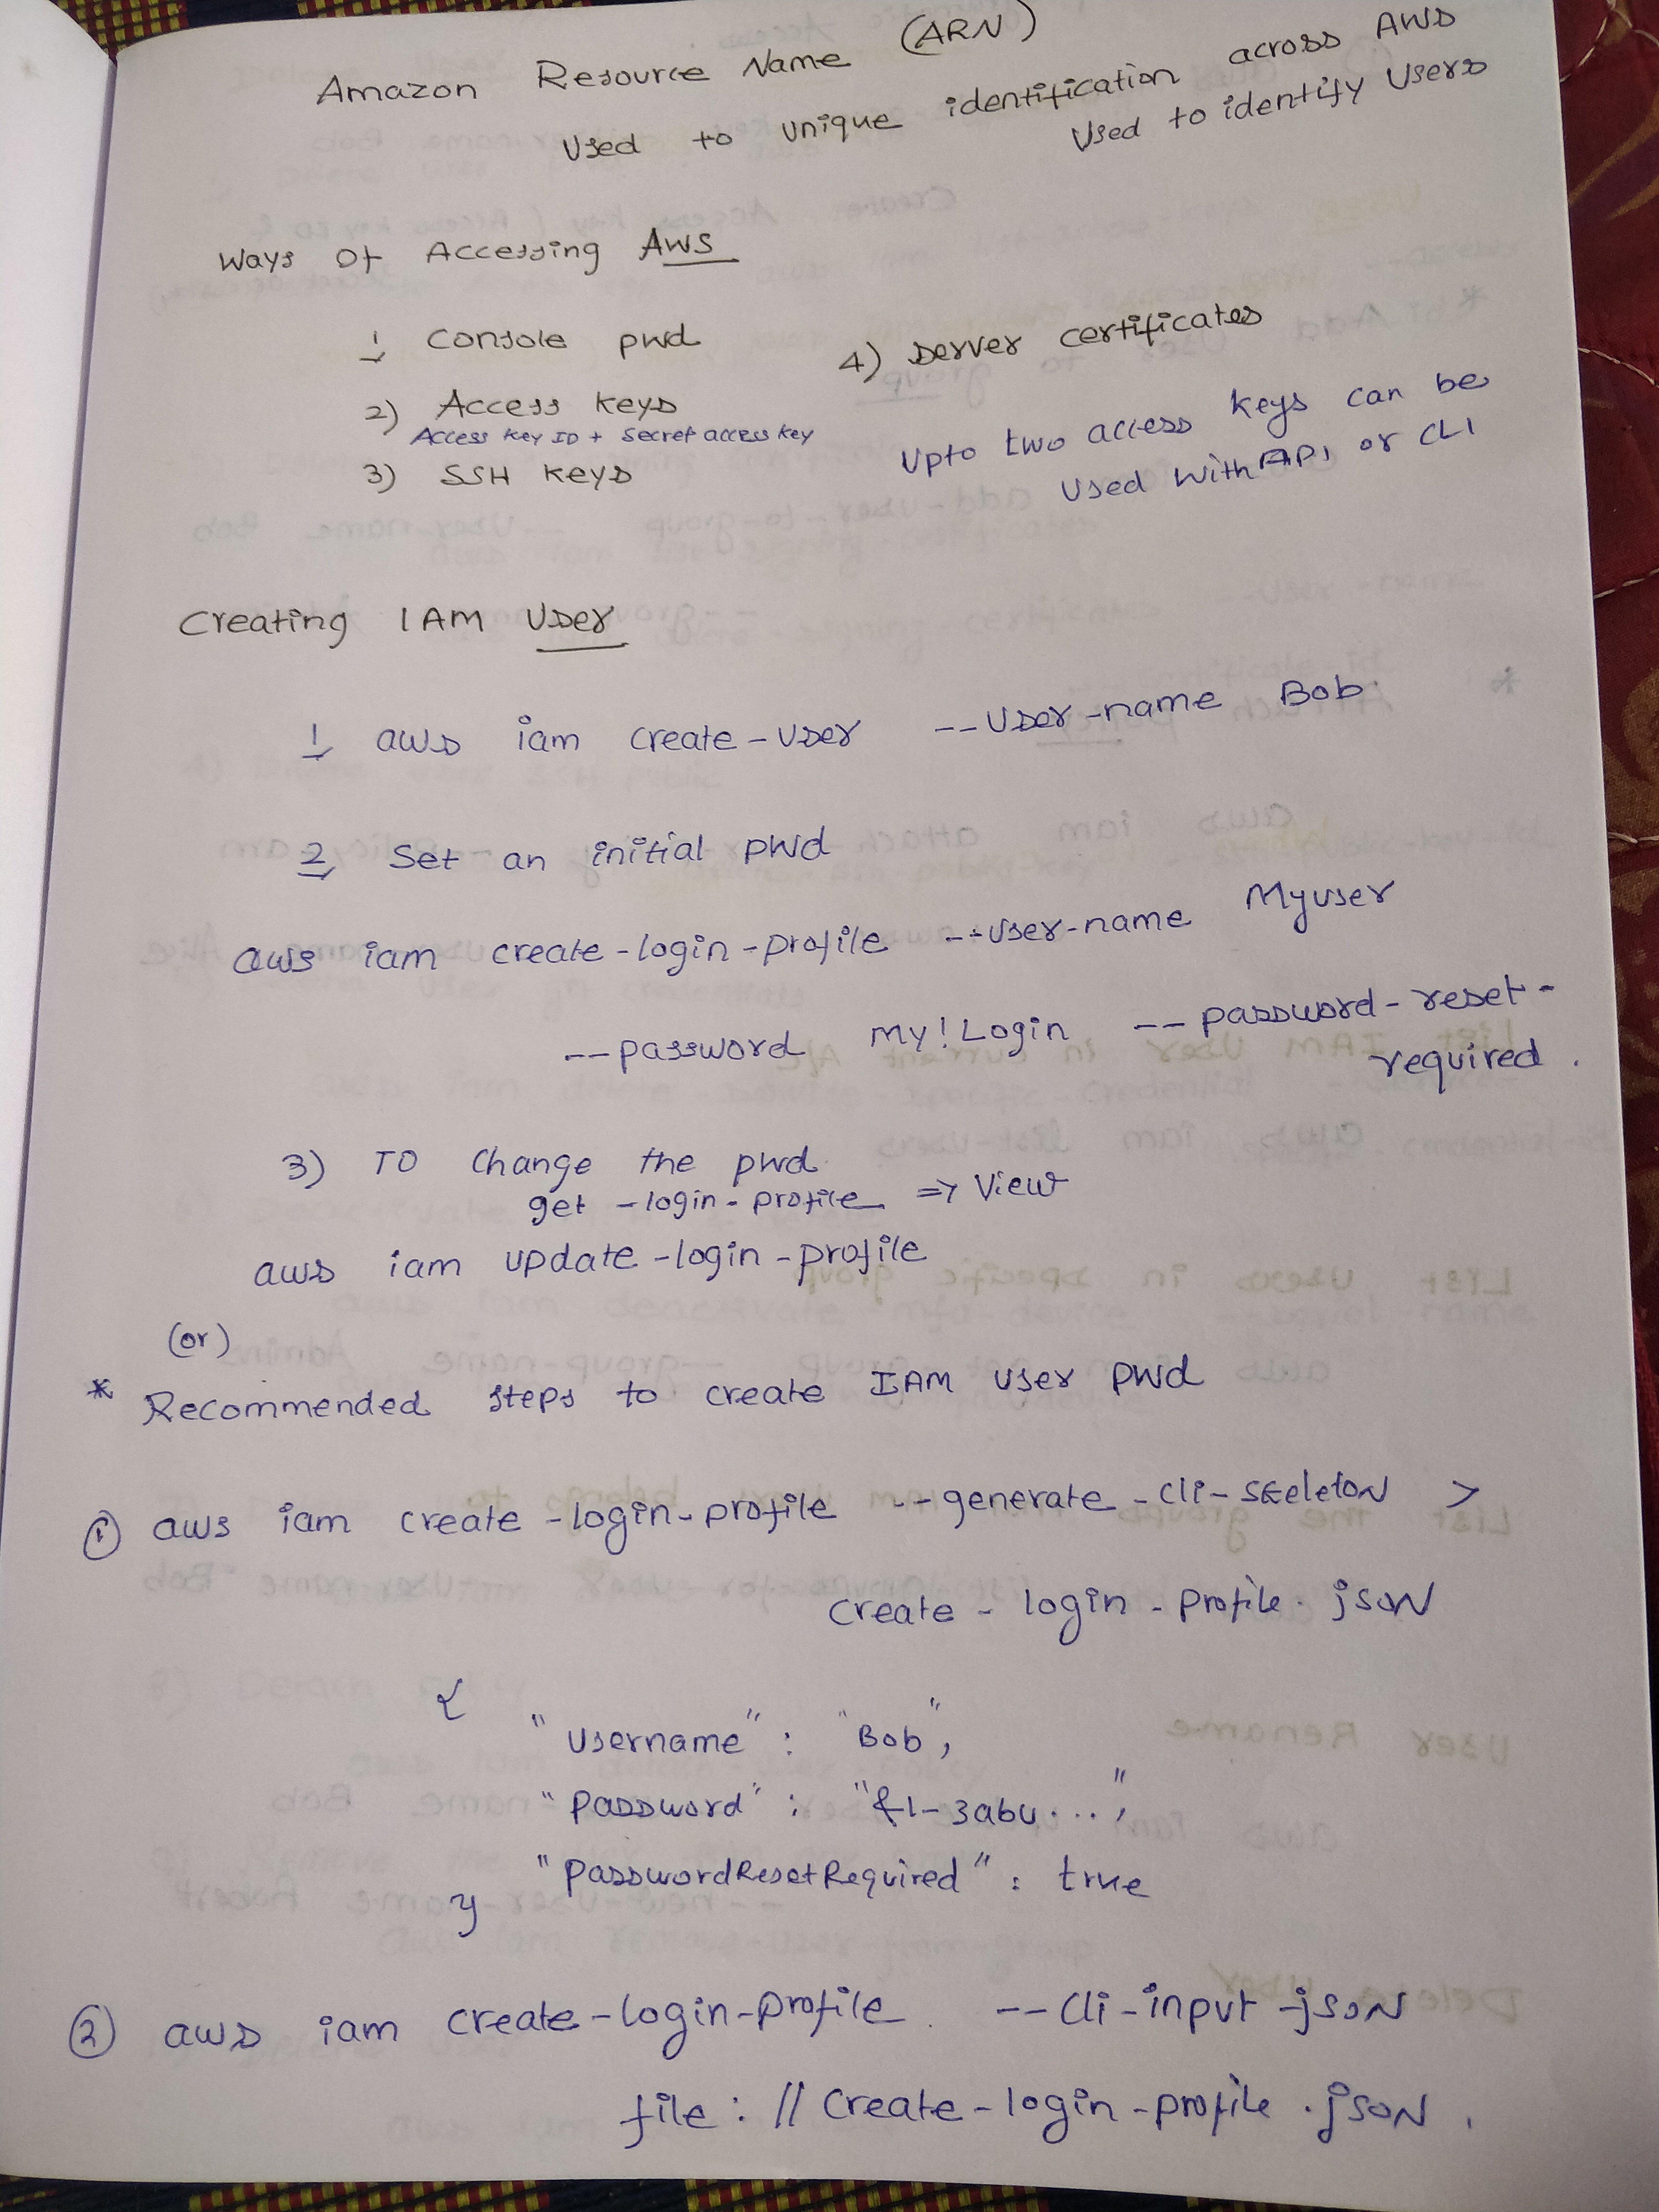 Amazon Resource Name (ARN)
Used to unique identification across AWS
Used to identify Users
Ways Of Accessing AWS
1) Console pwd
2) Access keys
Access Key ID + Secret access key
3) SSH keys
4) Server certificates
Upto two access keys can be
Used With API or CLI
Creating IAM User
1) aws iam create-user --user-name Bob.
2) Set an initial pwd
aws iam create-login-profile --user-name Myuser
--password My!Login --password-reset-
required.
3) TO Change the pwd
get-login-profile => View
aws iam update-login-profile
(or)
* Recommended steps to create IAM user pwd
① aws iam create-login-profile --generate-cli-skeleton >
create-login-profile.json
{
"Username" : "Bob",
"Password" : "&1-3abu...",
"PasswordResetRequired" : true
}
② aws iam create-login-profile. --cli-input-json
file://create-login-profile.json.